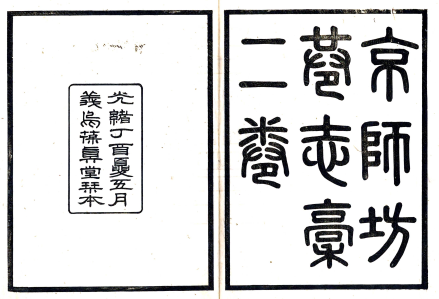 京師坊
巷志稾
二卷
光緒丁酉夏五月
義烏葆眞堂栞本